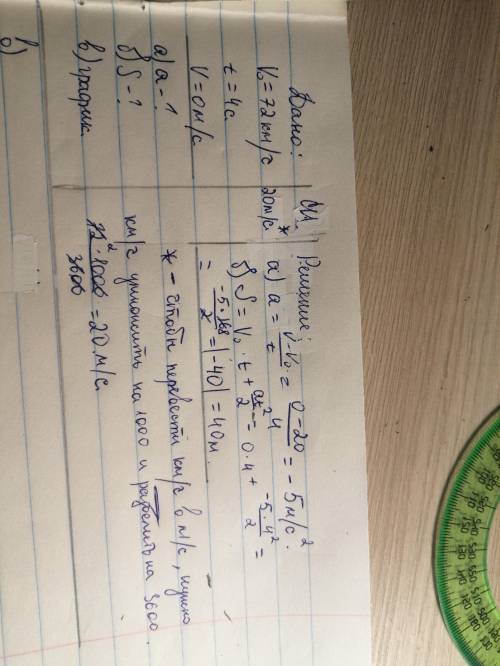 Дано:
V₀ = 72 км/с
t = 4с.
V = 0 м/с
а) a - ?
б) S - ?
в) график
СИ
20м/с*
Решение:
а) a = (V - V₀)/t = (0 - 20)/4 = -5 м/с².
б) S = V₀ · t + at²/2 = 0 · 4 + (-5 · 4²)/2 =
= (-5 · 168)/2 = |-40| = 40 м.
* - чтобы перевести км/г в м/с, нужно
км/г умножить на 1000 и разделить на 3600.
72² · 1000/3600 = 20 м/с.